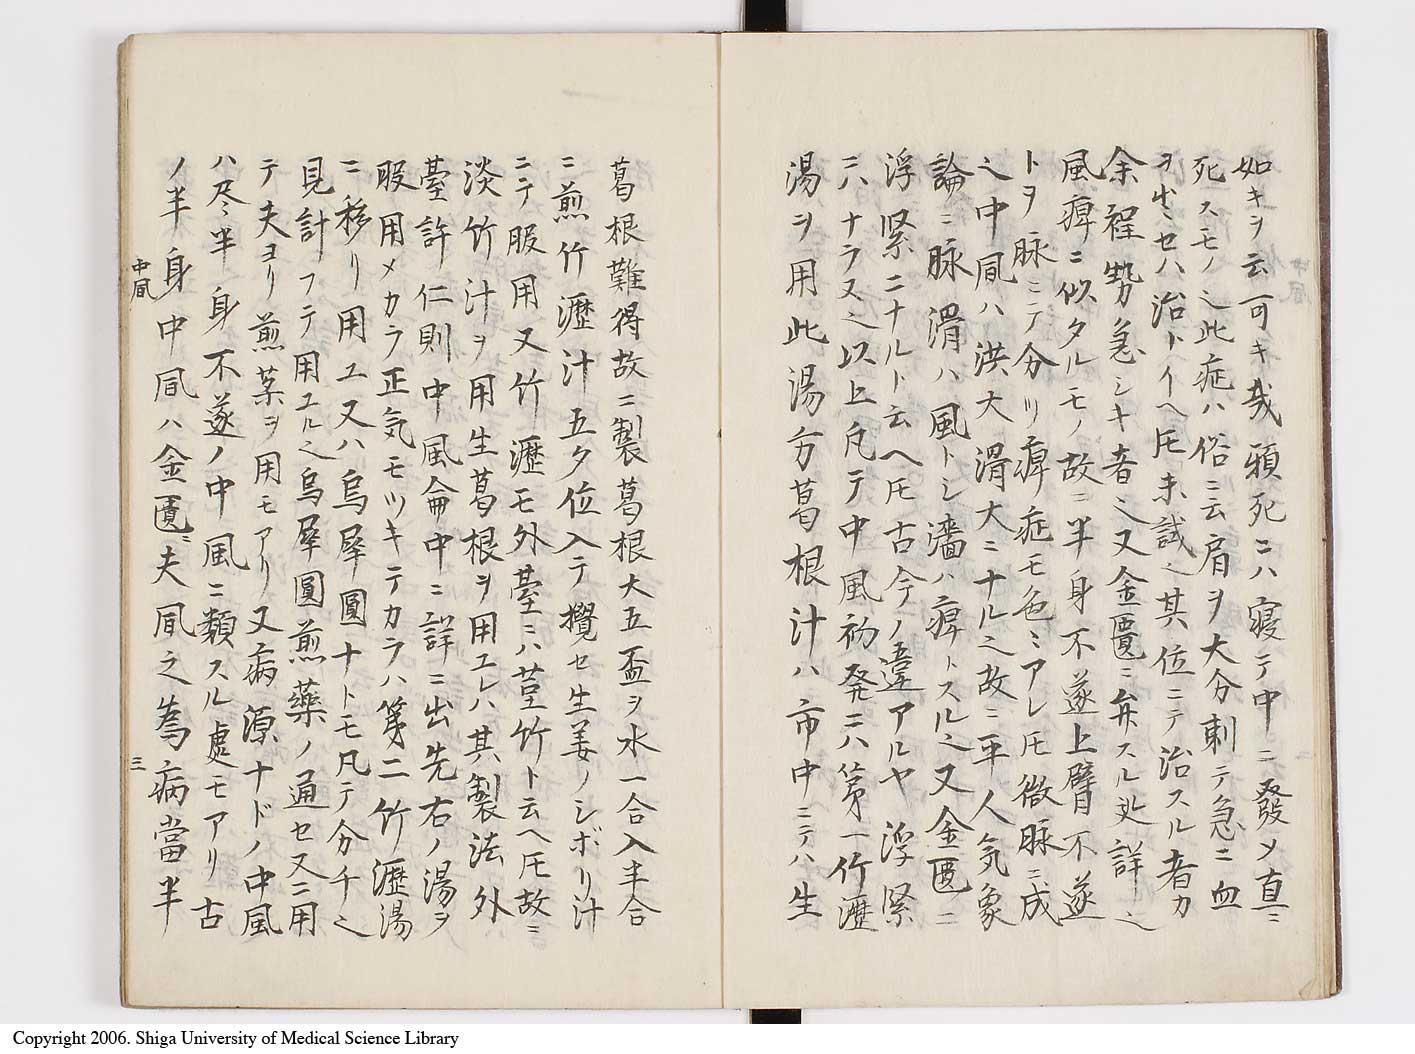 如キヲ云可キ哉頓死ニハ寝テ中ニ發メ直ニ
死スモノ之此症ハ俗ニ云肩ヲ大分刺テ急ニ血
ヲ出セハ治トイヘ𪜈未試之其位ニテ治スル者カ
余程勢急シキ者之又金匱ニ弁スル処詳之
風痺ニ似タルモノ故ニ半身不遂上臂不遂
トヲ脉ニテ分リ痺症モ色〻アレ𪜈微脉ニ成
之中風ハ洪大滑大ニナル之故ニ平人気象
論ニ脉滑ハ風トシ濇ハ痺トスル之又金匱ニ
浮緊ニナルト云ヘ𪜈古今ノ違アルヤ浮緊
ニハナラヌ之以上凡テ中風初発ニハ第一竹瀝
湯ヲ用此湯方葛根汁ハ市中ニテハ生
葛根難得故ニ製葛根大五盃ヲ水一合入半合
ニ煎竹瀝汁五夕位入テ攪セ生姜ノシボリ汁
ニテ服用又竹瀝モ外臺ニハ莖竹ト云ヘ𪜈故ニ
淡竹汁ヲ用生葛根ヲ用エレハ其製法外
臺許仁則中風侖中ニ詳ニ出先右ノ湯ヲ
服用メカラ正気モツキテカラハ第二竹瀝湯
ニ移リ用ユ又ハ烏犀圓ナトモ凡テ分チ之
見計フテ用ユル之烏犀圓煎藥ノ通セ又ニ用
テ夫ヨリ煎薬ヲ用モアリ又病源ナドノ中風
ハ尽半身不遂ノ中風ニ類スル處モアリ古
ノ半身中風ハ金匱ニ夫風之為病當半
中風
三
Copyright 2006. Shiga University of Medical Science Library